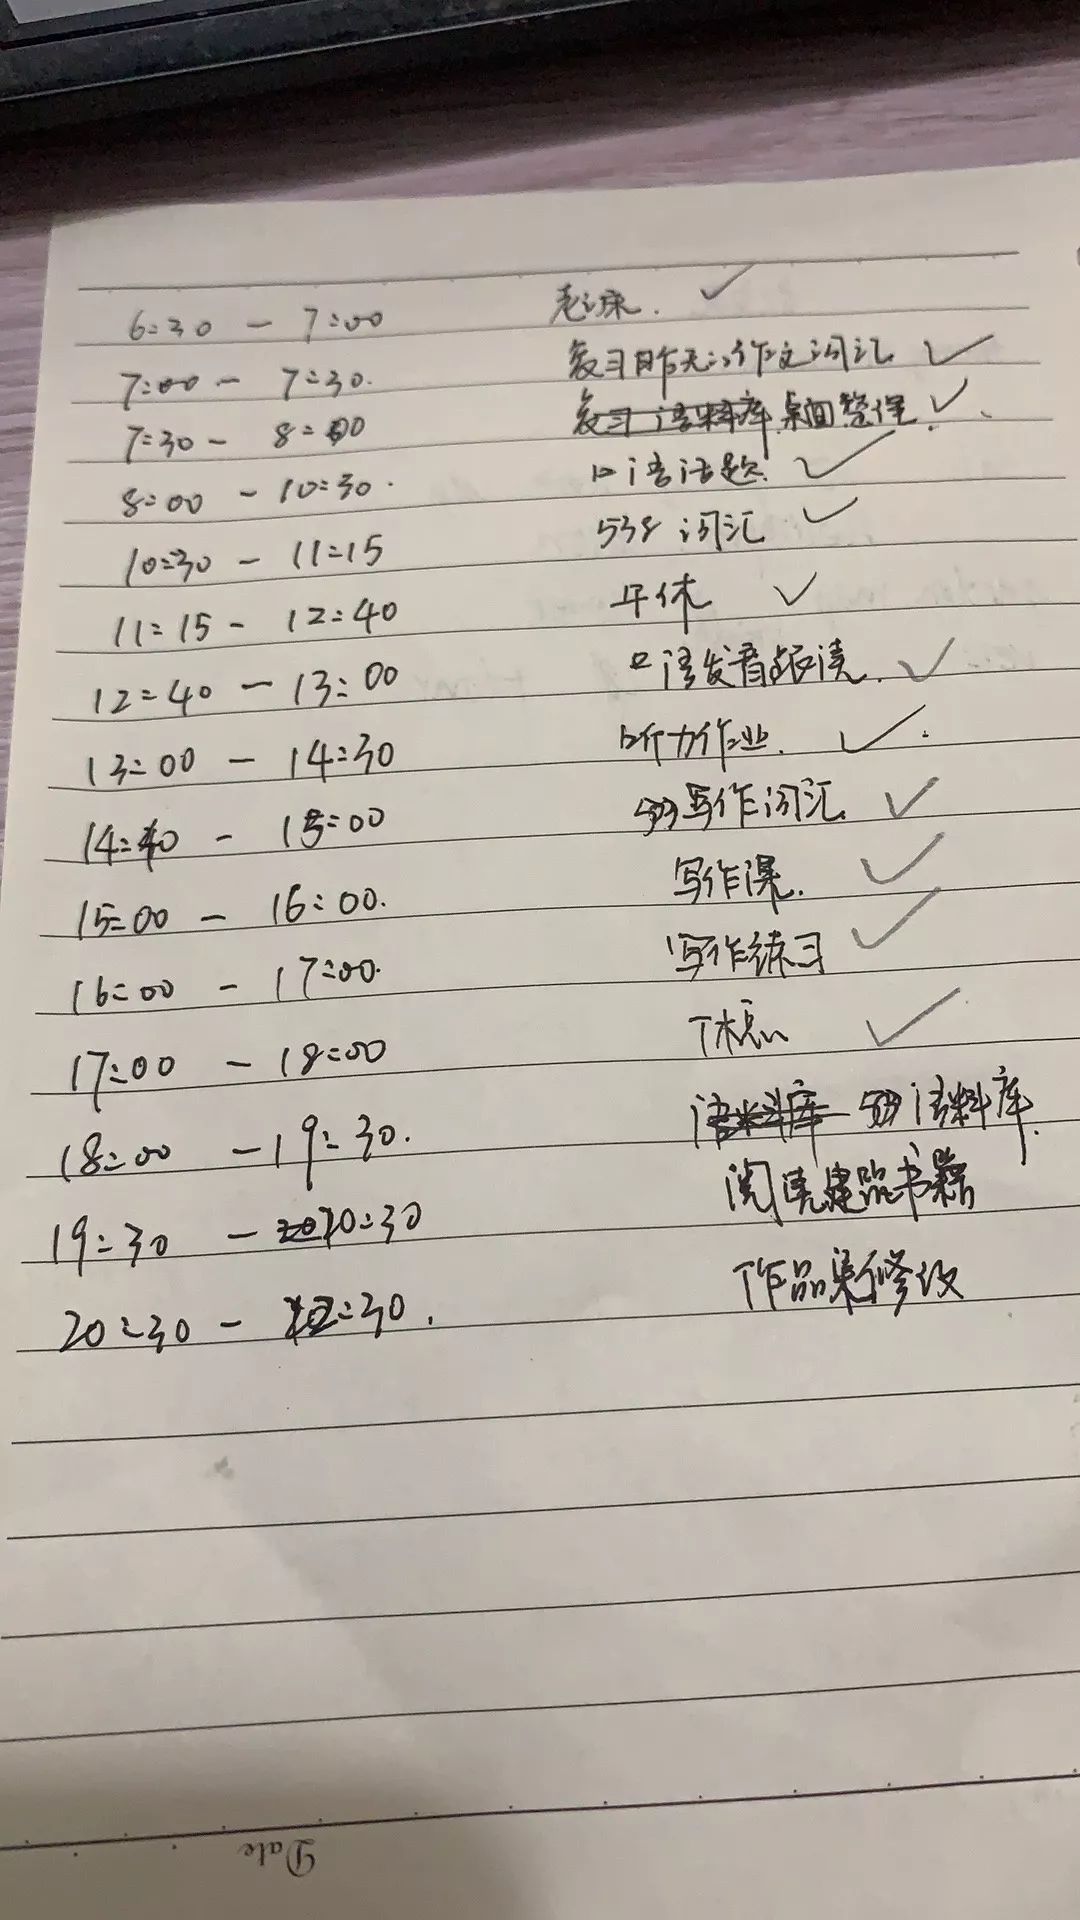 6:30 - 7:00 起床.
7:00 - 7:30. 复习昨天的作文词汇
7:30 - 8:00 复习语料库 桌面整理.
8:00 - 10:30. 口语话题.
10:30 - 11:15 538 词汇
11:15 - 12:40 午休
12:40 - 13:00 口语发音跟读.
13:00 - 14:30 听力作业.
14:40 - 15:00 写作词汇
15:00 - 16:00. 写作课.
16:00 - 17:00. 写作练习
17:00 - 18:00 休息
18:00 - 19:30. 语料库 语料库.
19:30 - 20:30 阅读建筑书籍
20:30 - :30. 作品集修改
Date